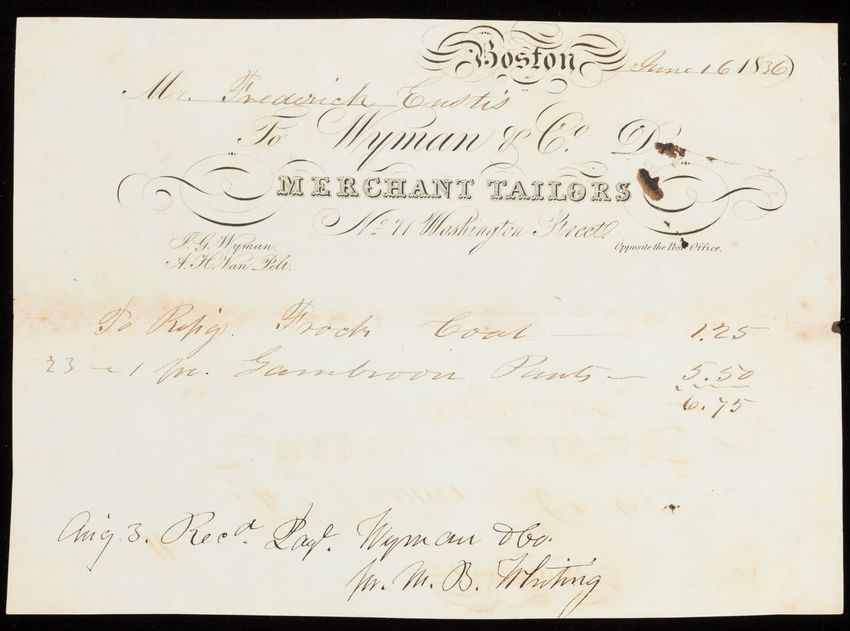 Boston June 16 1836
Mr. Frederick Eustis
To Wyman & Co. Dr.
MERCHANT TAILORS
No. 71 Washington Street.
Opposite the Post Office.
T. G. Wyman.
A. H. Van Pelt.
To Repg. Frock Coat — 1.25
23 — 1 pr. Gambroon Pants — 5.50
6.75
Aug 3. Recd. Payt. Wyman & Co.
pr. M. B. Whiting